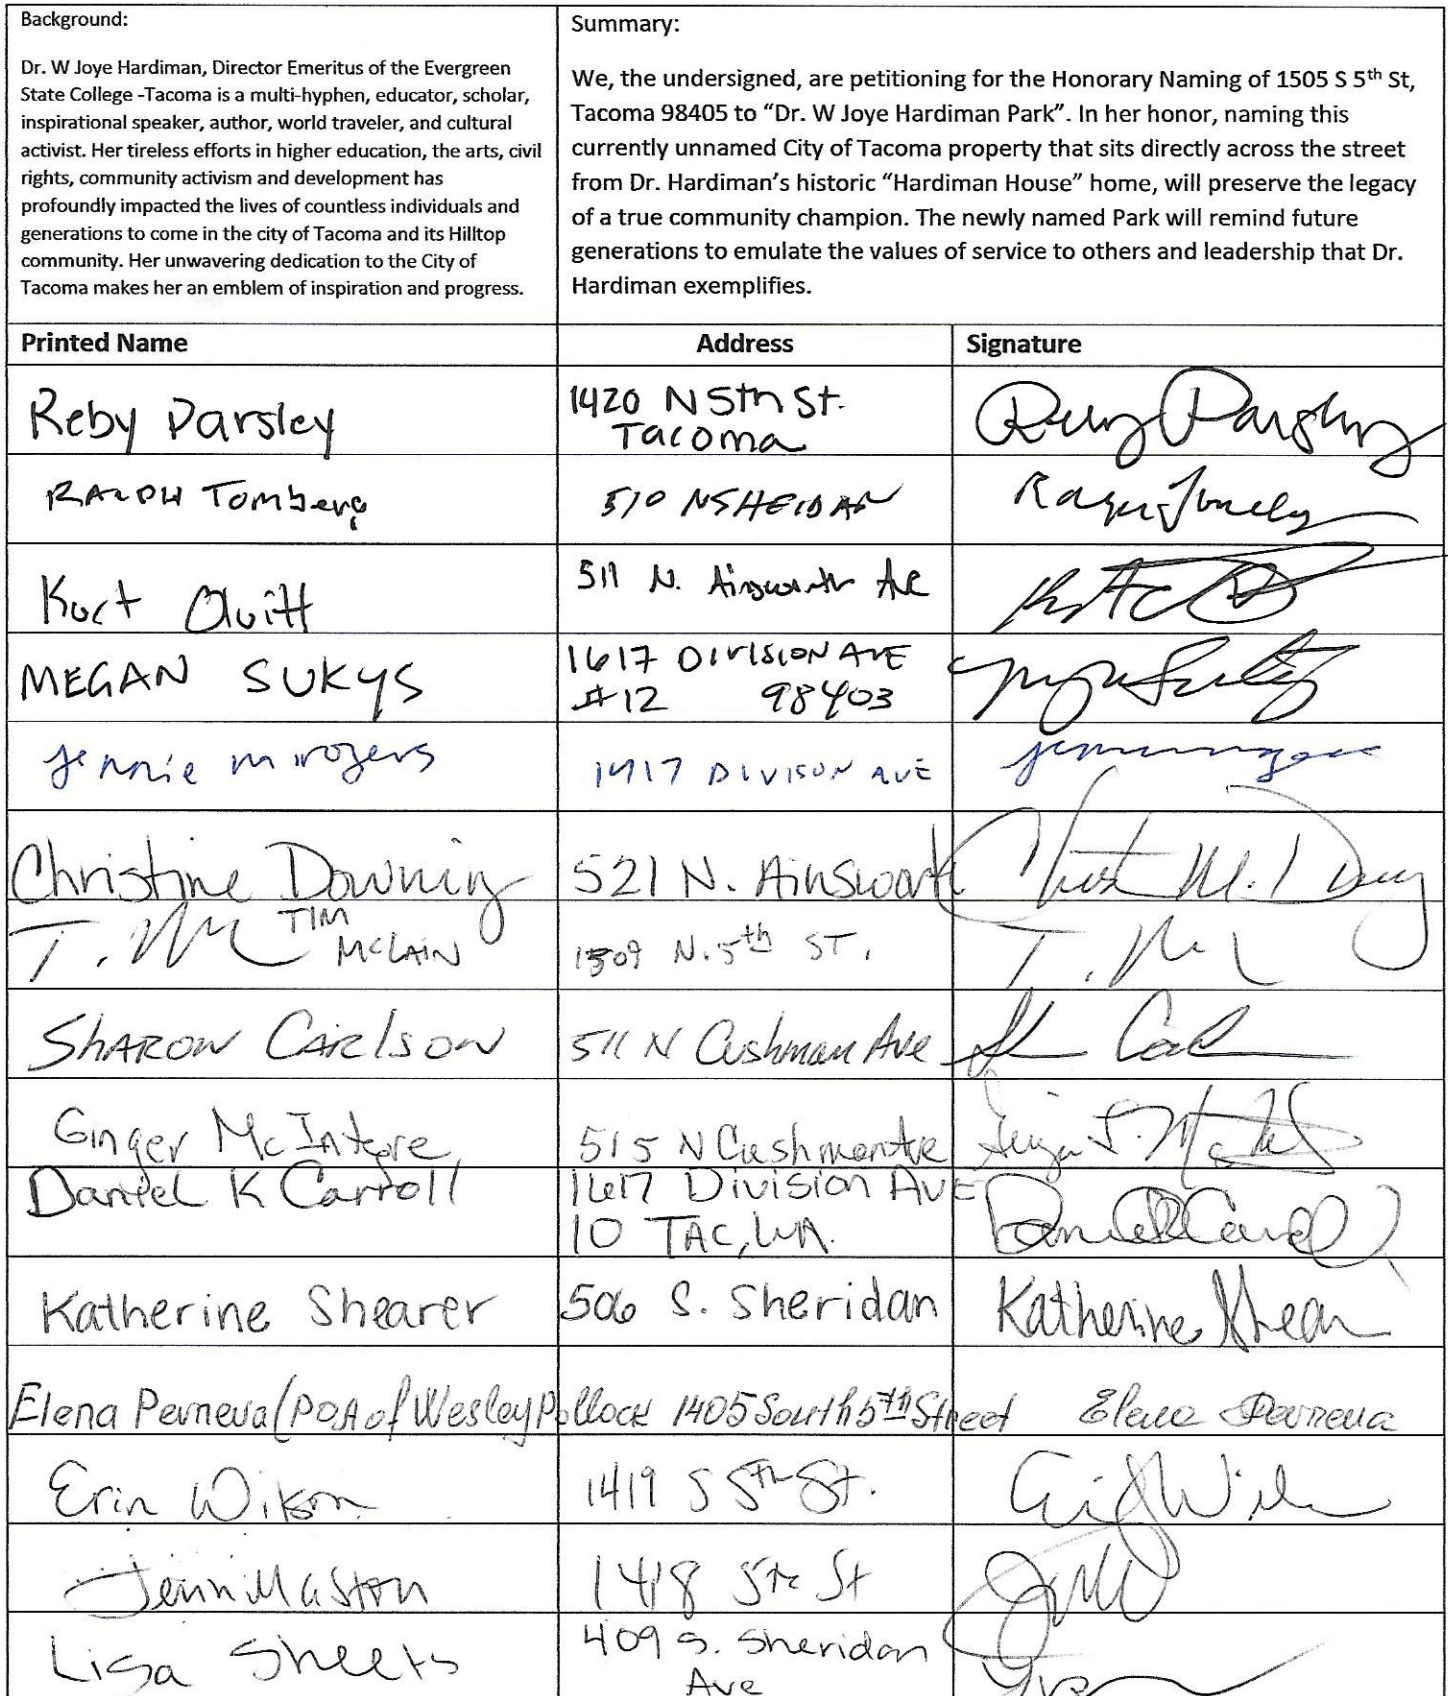 Background:
Dr. W Joye Hardiman, Director Emeritus of the Evergreen
State College -Tacoma is a multi-hyphen, educator, scholar,
inspirational speaker, author, world traveler, and cultural
activist. Her tireless efforts in higher education, the arts, civil
rights, community activism and development has
profoundly impacted the lives of countless individuals and
generations to come in the city of Tacoma and its Hilltop
community. Her unwavering dedication to the City of
Tacoma makes her an emblem of inspiration and progress.
Summary:
We, the undersigned, are petitioning for the Honorary Naming of 1505 S 5th St,
Tacoma 98405 to “Dr. W Joye Hardiman Park”. In her honor, naming this
currently unnamed City of Tacoma property that sits directly across the street
from Dr. Hardiman’s historic “Hardiman House” home, will preserve the legacy
of a true community champion. The newly named Park will remind future
generations to emulate the values of service to others and leadership that Dr.
Hardiman exemplifies.
Printed Name Address Signature
Reby Parsley 1420 N 5th St. Reby Parsley
Tacoma
RALPH Tomberg 510 N SHEIDAN
Kurt 511 N. Ainsworth Ave
MEGAN SUKYS 1617 DIVISION AVE
#12 98403
Jennie m rogers DIVISON AVE
Christine Downing 521 N. Ainsworth
T. M TIM
MCLAIN N. 5th ST.
SHARON CARLSON 511 N Cushman Ave
Ginger McIntyre 515 N Cushman Ave
Daniel K Carroll 1617 Division AVE Daniel K Carroll
10 TAC, WA.
Katherine Shearer 506 S. Sheridan Katherine Shear
Elena Pevneva (POA of Wesley Pollock 1405 South 5th Street Elena Pevneva
Erin Wilson 1419 S 5th St.
Jenn Maston 1418 5th St
Lisa Sheets 409 S. Sheridan
Ave